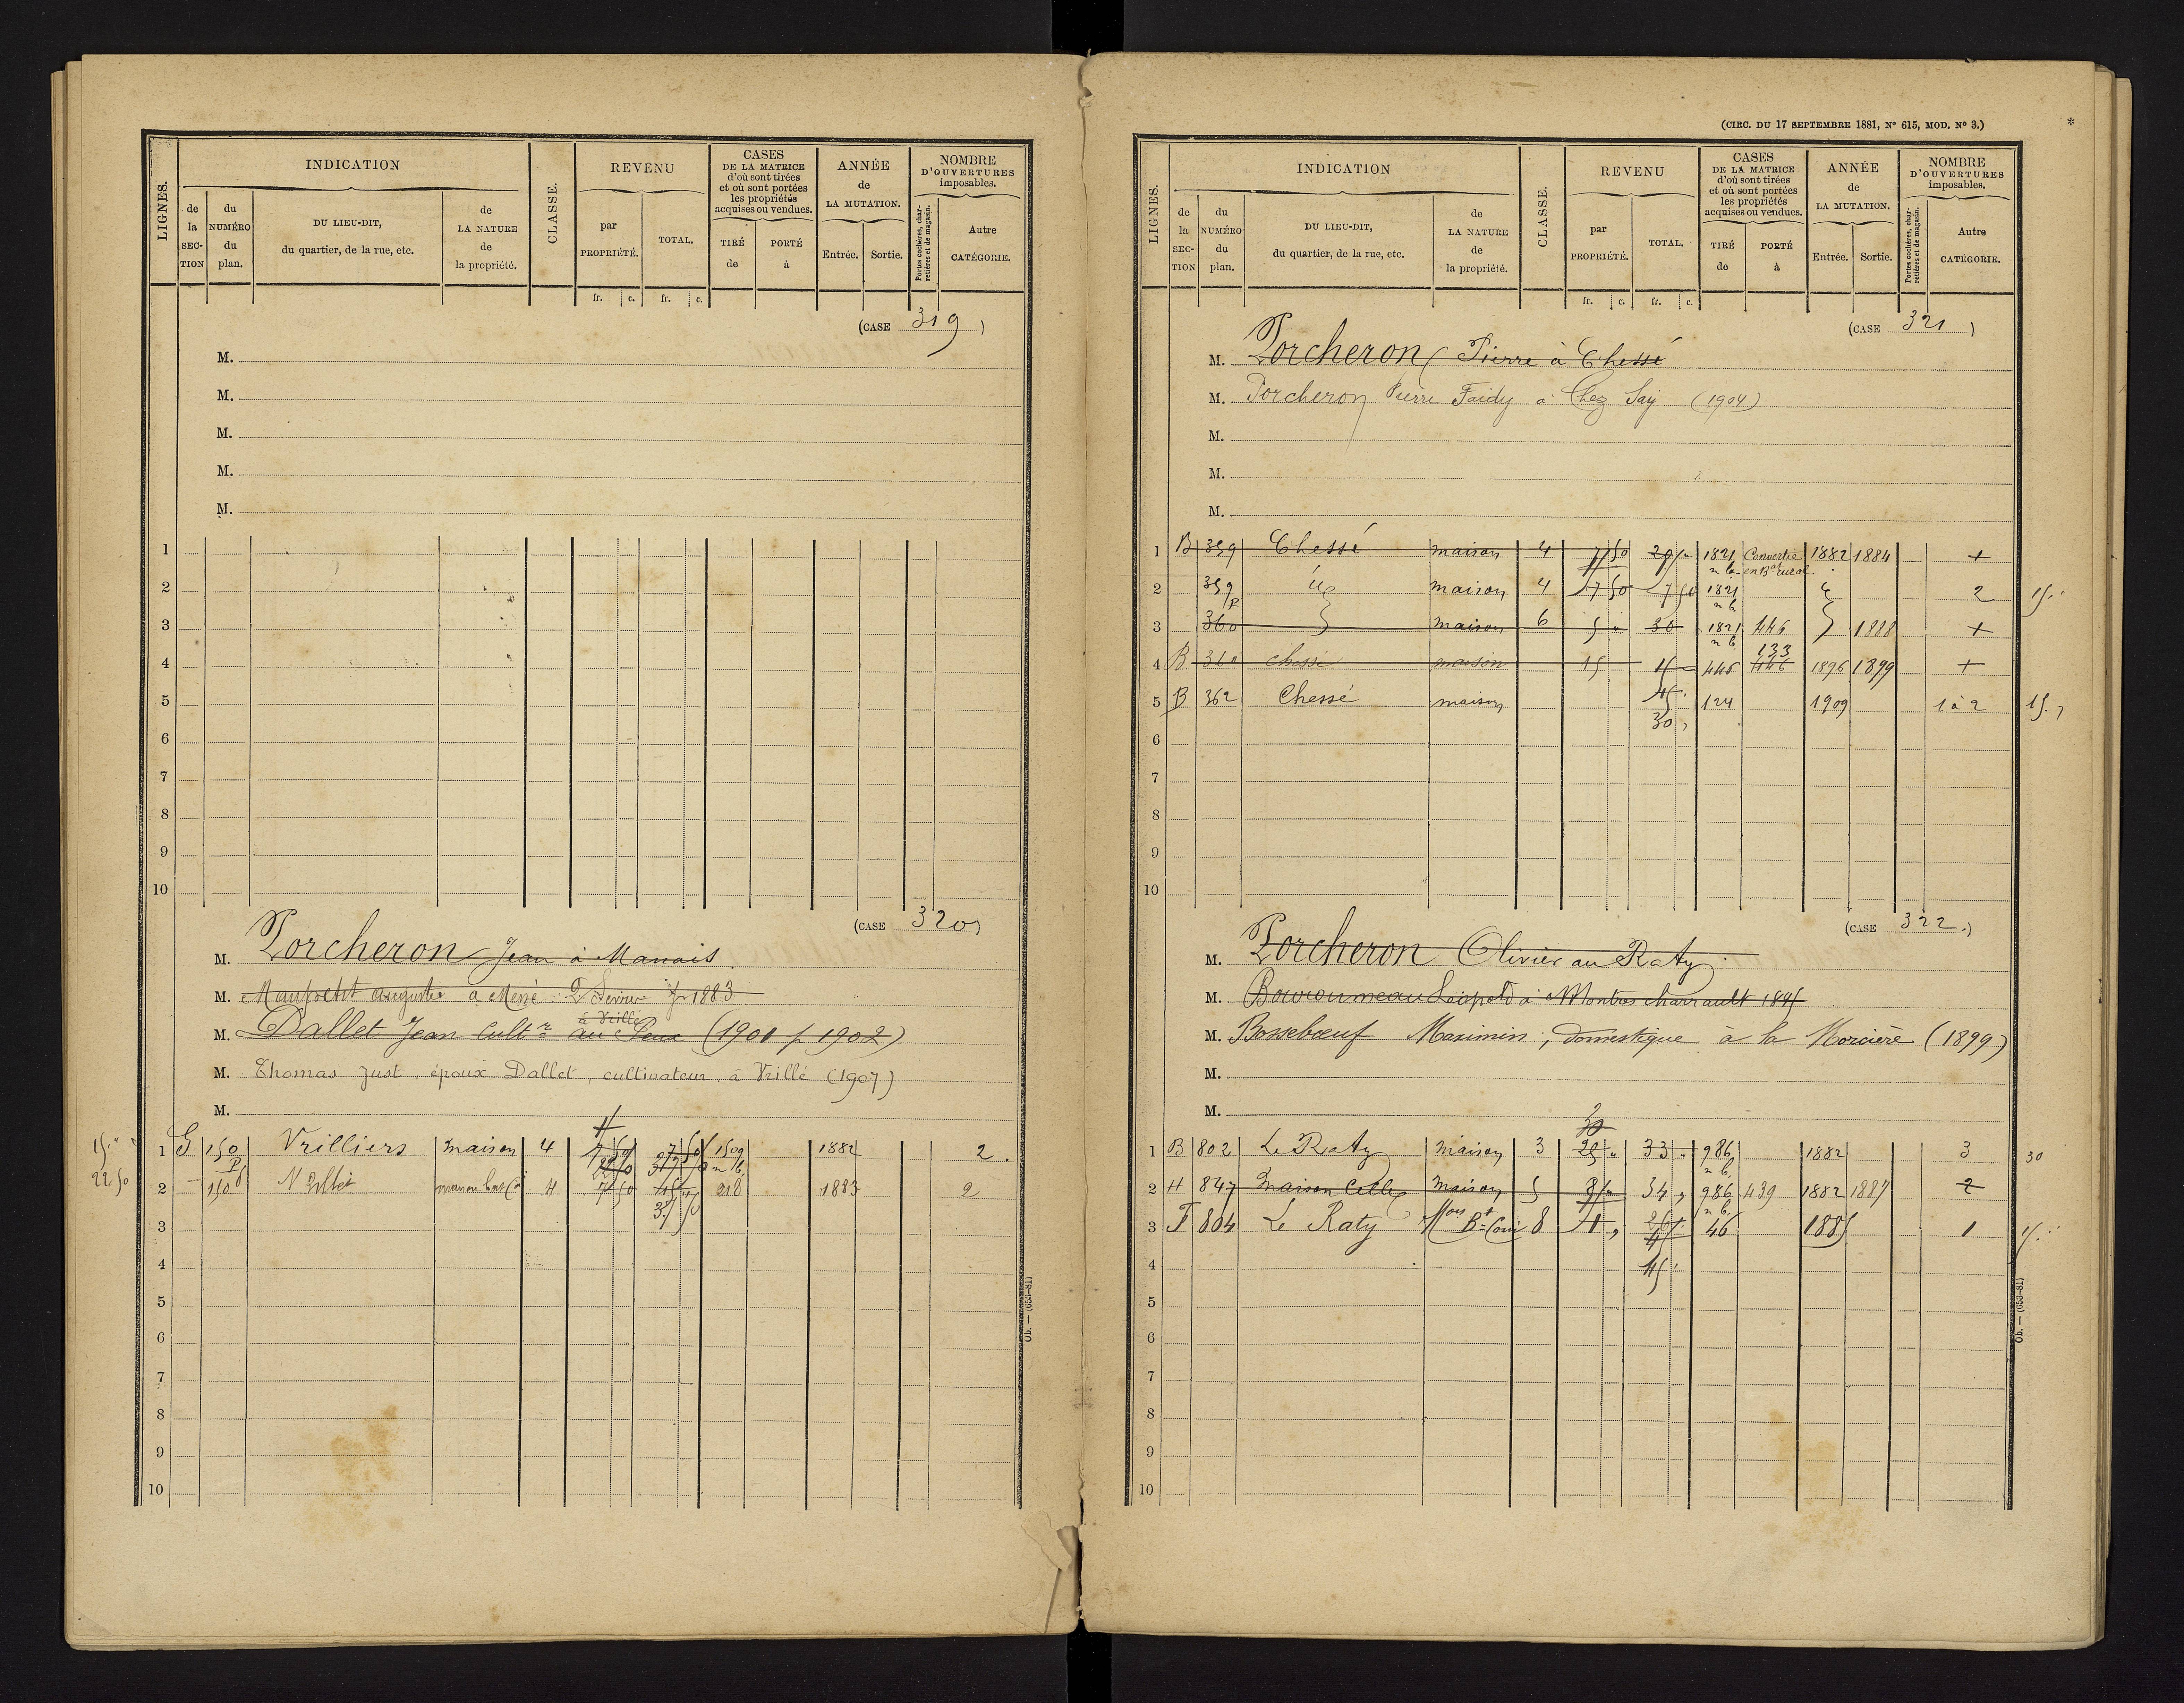 LIGNES.
INDICATION
de la SECTION
du NUMÉRO du plan.
DU LIEU-DIT, du quartier, de la rue, etc.
de LA NATURE de la propriété.
CLASSE.
REVENU
par PROPRIÉTÉ.
TOTAL.
fr. c. fr. c.
CASES DE LA MATRICE d'où sont tirées et où sont portées les propriétés acquises ou vendues.
TIRÉ de
PORTÉ à
ANNÉE de LA MUTATION.
Entrée. Sortie.
NOMBRE D'OUVERTURES imposables.
Portes cochères, charretières et de magasin.
Autre CATÉGORIE.
(CASE 319)
M.
M.
M.
M.
M.
1
2
3
4
5
6
7
8
9
10
(CASE 320)
M. Porcheron Jean à Marrais
M. Maupetit auguste à Messé 1883
à Vrillé
M. Dallet Jean Cultr au Peux (1901 p 1902)
M. Thomas Just, époux Dallet, cultivateur, à Vrillé (1907)
M.
1 G 150 p Vrilliers maison 4 7 50 7 50 1509 n b. 1882 2.
22 50
2 150 maison 4 7 50 218 1883 2
37 50
3
4
5
6
7
8
9
10
Ob. — (653-81)
(CIRC. DU 17 SEPTEMBRE 1881, N° 615, MOD. N° 3.)
*
LIGNES.
INDICATION
de la SECTION
du NUMÉRO du plan.
DU LIEU-DIT, du quartier, de la rue, etc.
de LA NATURE de la propriété.
CLASSE.
REVENU
par PROPRIÉTÉ.
TOTAL.
fr. c. fr. c.
CASES DE LA MATRICE d'où sont tirées et où sont portées les propriétés acquises ou vendues.
TIRÉ de
PORTÉ à
ANNÉE de LA MUTATION.
Entrée. Sortie.
NOMBRE D'OUVERTURES imposables.
Portes cochères, charretières et de magasin.
Autre CATÉGORIE.
(CASE 321)
M. Porcheron Pierre à Chessé
M. Porcheron Pierre Faidy à Chez Say (1904)
M.
M.
M.
1 B 359 Chessé maison 4 7 50 1821 n b. Convertie en Bat rural 1882 1884 +
2 359 p id maison 4 7 50 7 50 1821 n b. 2 15.
3 360 maison 6 5 " 30 1821 n b. 446 1888 +
4 B 360 chessé maison 15 446 446 133 1896 1899 +
5 B 362 Chessé maison 15 124 1909 1 à 2 15.
30
6
7
8
9
10
(CASE 322.)
M. Porcheron Olivier au Raty
M. Léopold à
M. Bosseboeuf Maximin, domestique à la Morcière (1899)
M.
M.
30
1 B 802 Le Raty Maison 3 25 " 33 " 986 n b. 1882 3 30
2 H 847 Maison Celle Maison 5 34 " 986 n b. 439 1882 1887 2
3 F 804 Le Raty Mon 8 46 1885 1 15.
4 45
5
6
7
8
9
10
Ob. — (653-81)